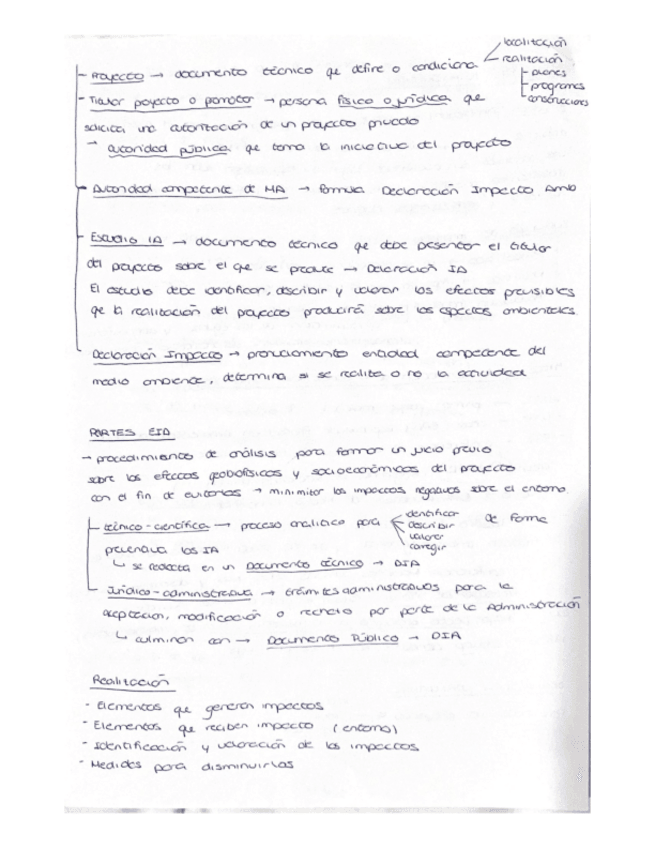 localización
- Proyecto → documento técnico que define o condiciona realización
planes
programas
construcciones
- Titular proyecto o promotor → persona física o jurídica que
solicita una autorización de un proyecto privado
→ autoridad pública que toma la iniciativa del proyecto
- Autoridad competente de MA → formula Declaración Impacto Amb
- Estudio IA → documento técnico que debe presentar el titular
del proyecto sobre el que se produce → Declaración IA
El estudio debe identificar, describir y valorar los efectos previsibles
que la realización del proyecto producirá sobre los aspectos ambientales.
Declaración Impacto → pronunciamiento entidad competente del
medio ambiente, determina si se realiza o no la actividad
PARTES EIA
→ procedimientos de análisis para formar un juicio previo
sobre los efectos geobiofísicos y socioeconómicos del proyecto
con el fin de evitarlos → minimizar los impactos negativos sobre el entorno.
- técnico-científica → proceso analítico para identificar describir valorar corregir de forma
preventiva los IA
↳ se redacta en un Documento técnico → DIA
- Jurídico-administrativa → trámites administrativos para la
aceptación, modificación o rechazo por parte de la Administración
↳ culminan con → Documento Público → DIA
Realización
- Elementos que generan impactos
- Elementos que reciben impacto (entorno)
- Identificación y valoración de los impactos
- Medidas para disminuirlas